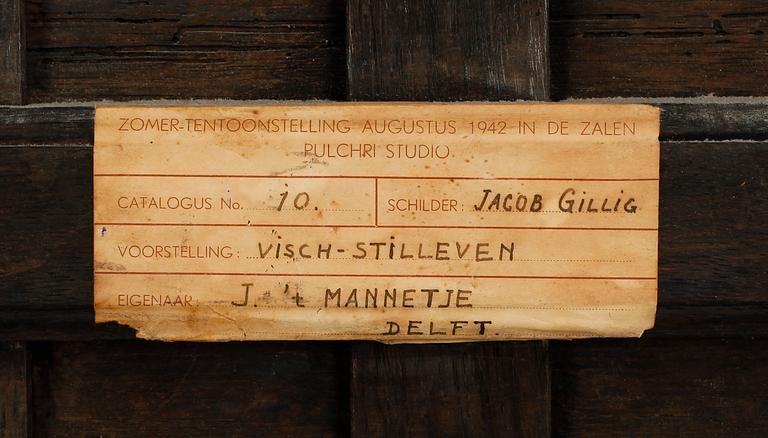 ZOMER-TENTOONSTELLING AUGUSTUS 1942 IN DE ZALEN
PULCHRI STUDIO.
CATALOGUS No. 10. SCHILDER: JACOB GILLIG
VOORSTELLING: VISCH-STILLEVEN
EIGENAAR: J. 't MANNETJE
DELFT.